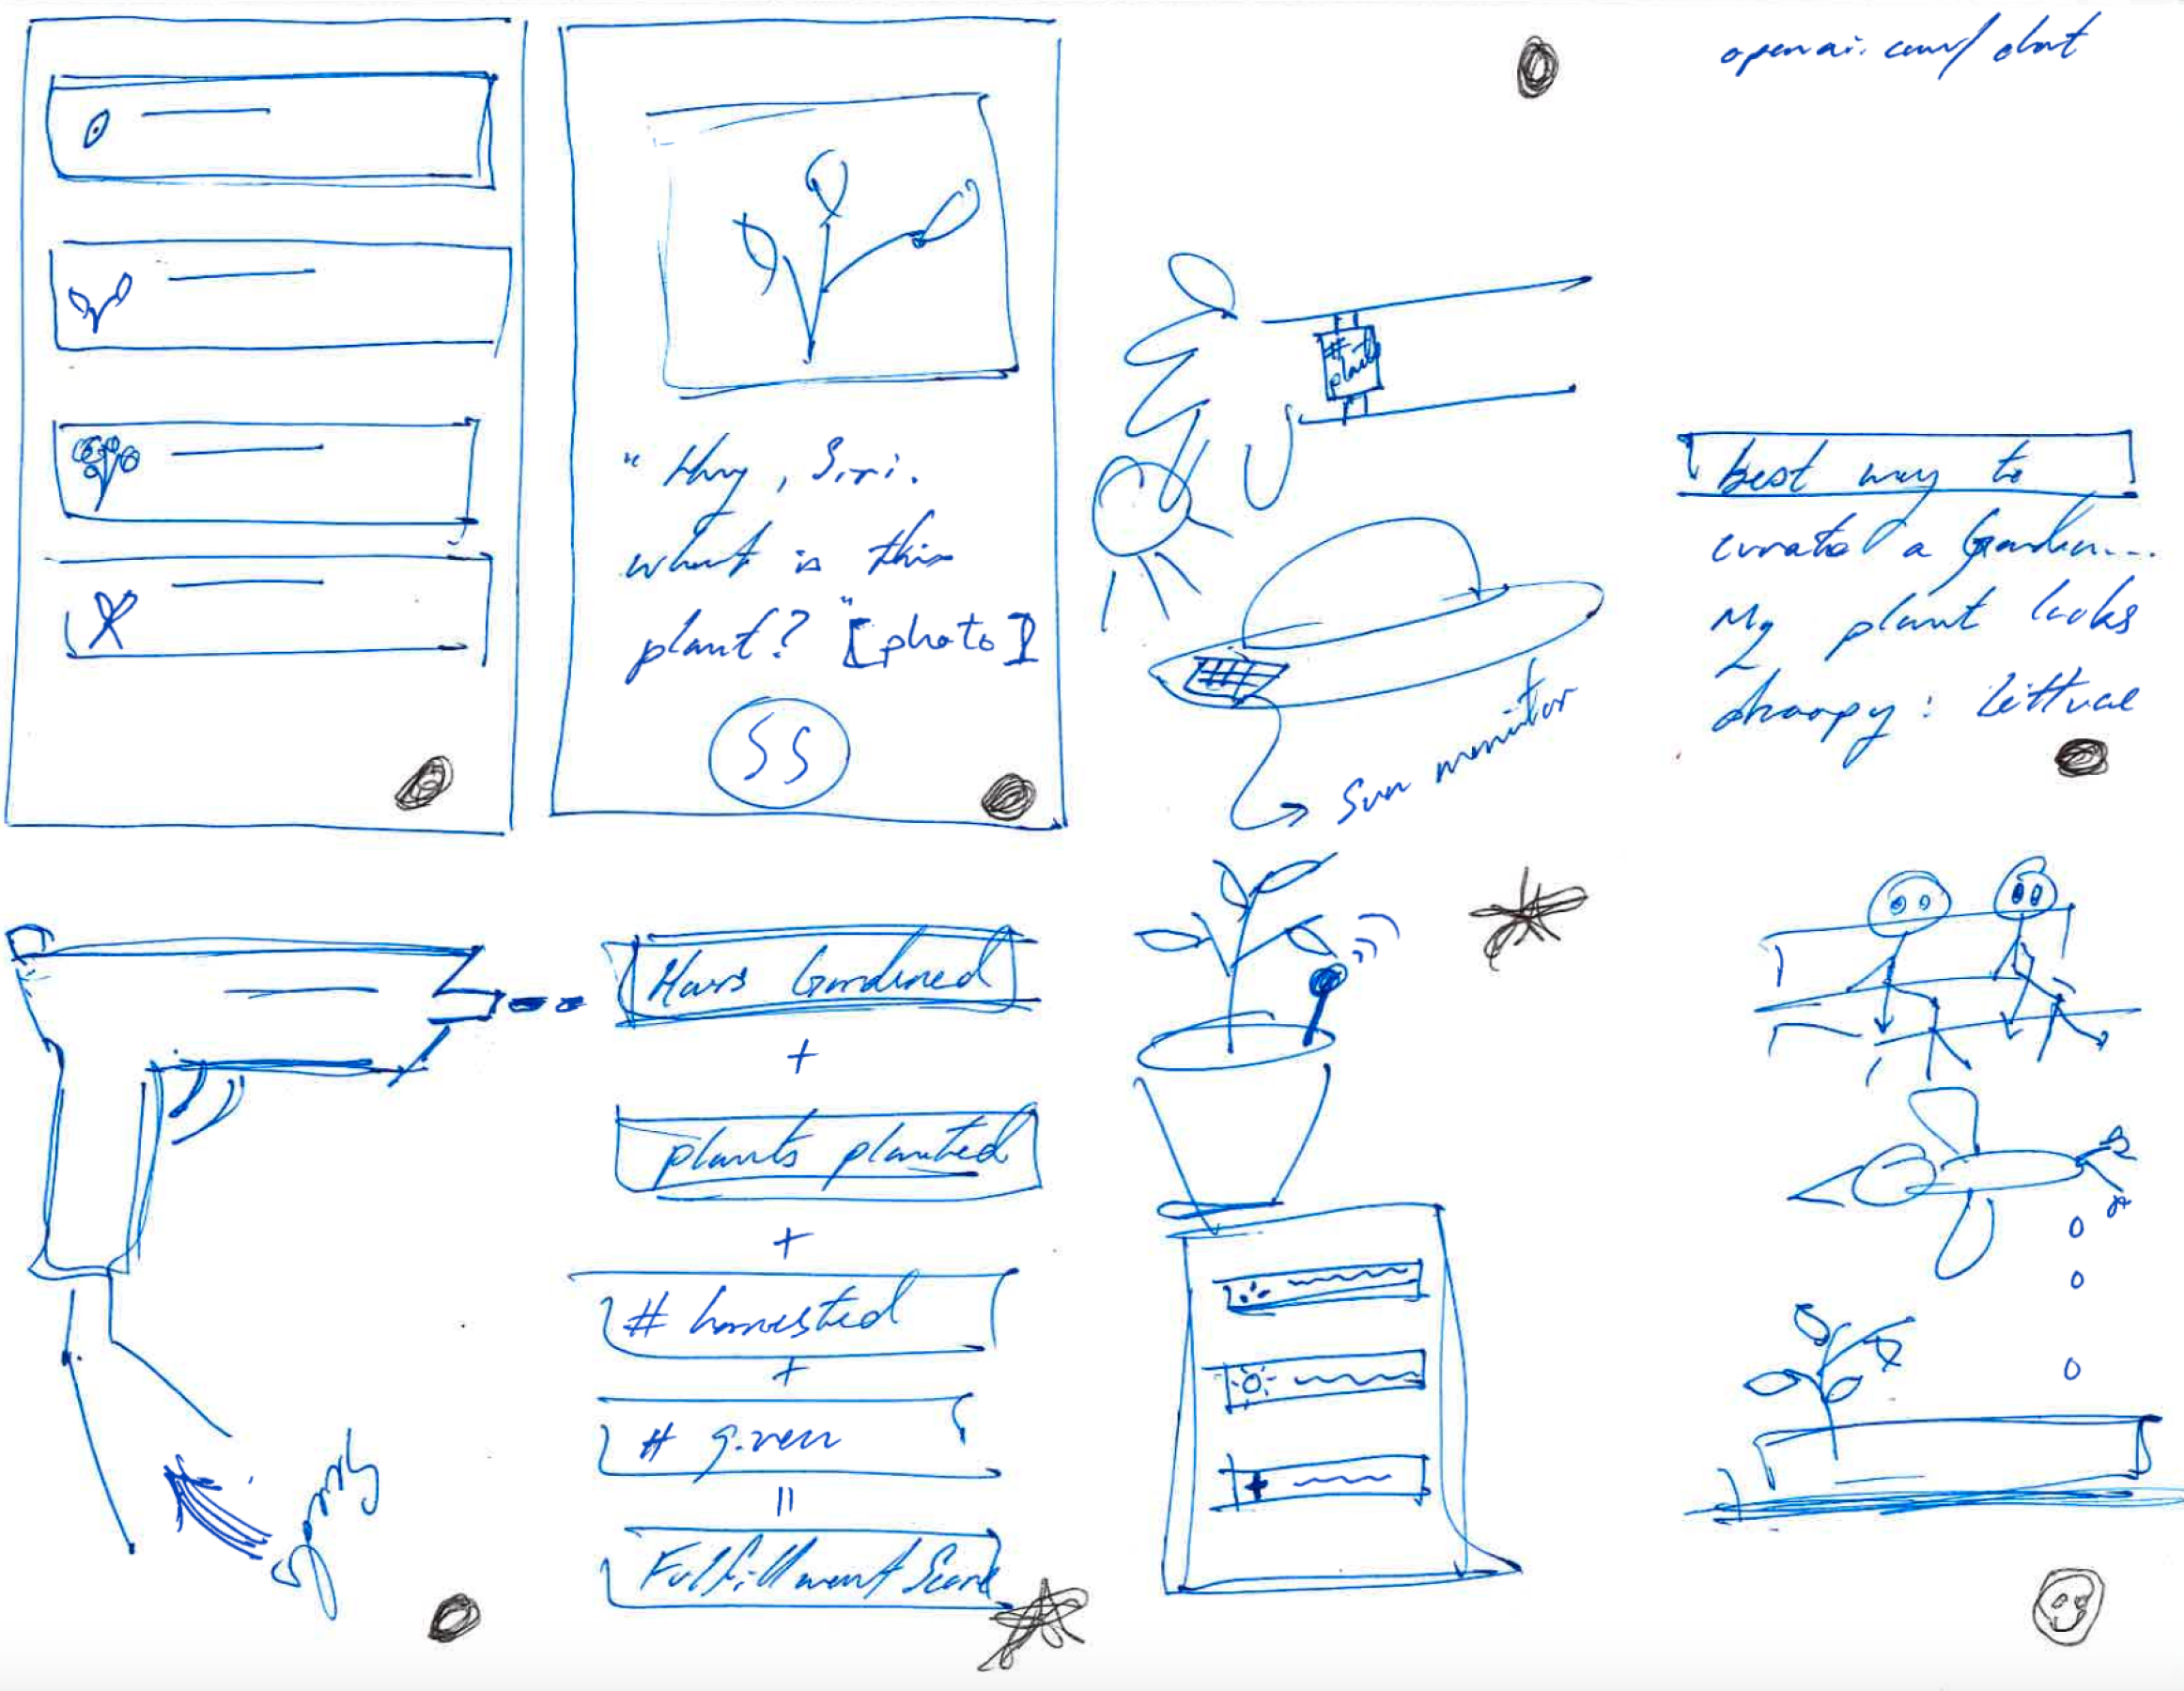 openai.com/chat
"Hey, Siri.
what is this
plant?" [photo]
SS
#
plants
Sun monitor
best way to
curate a Garden...
My plant looks
droopy: Lettuce
Hours Gardened
+
plants planted
+
# harvested
+
# given
=
Fulfillment Score